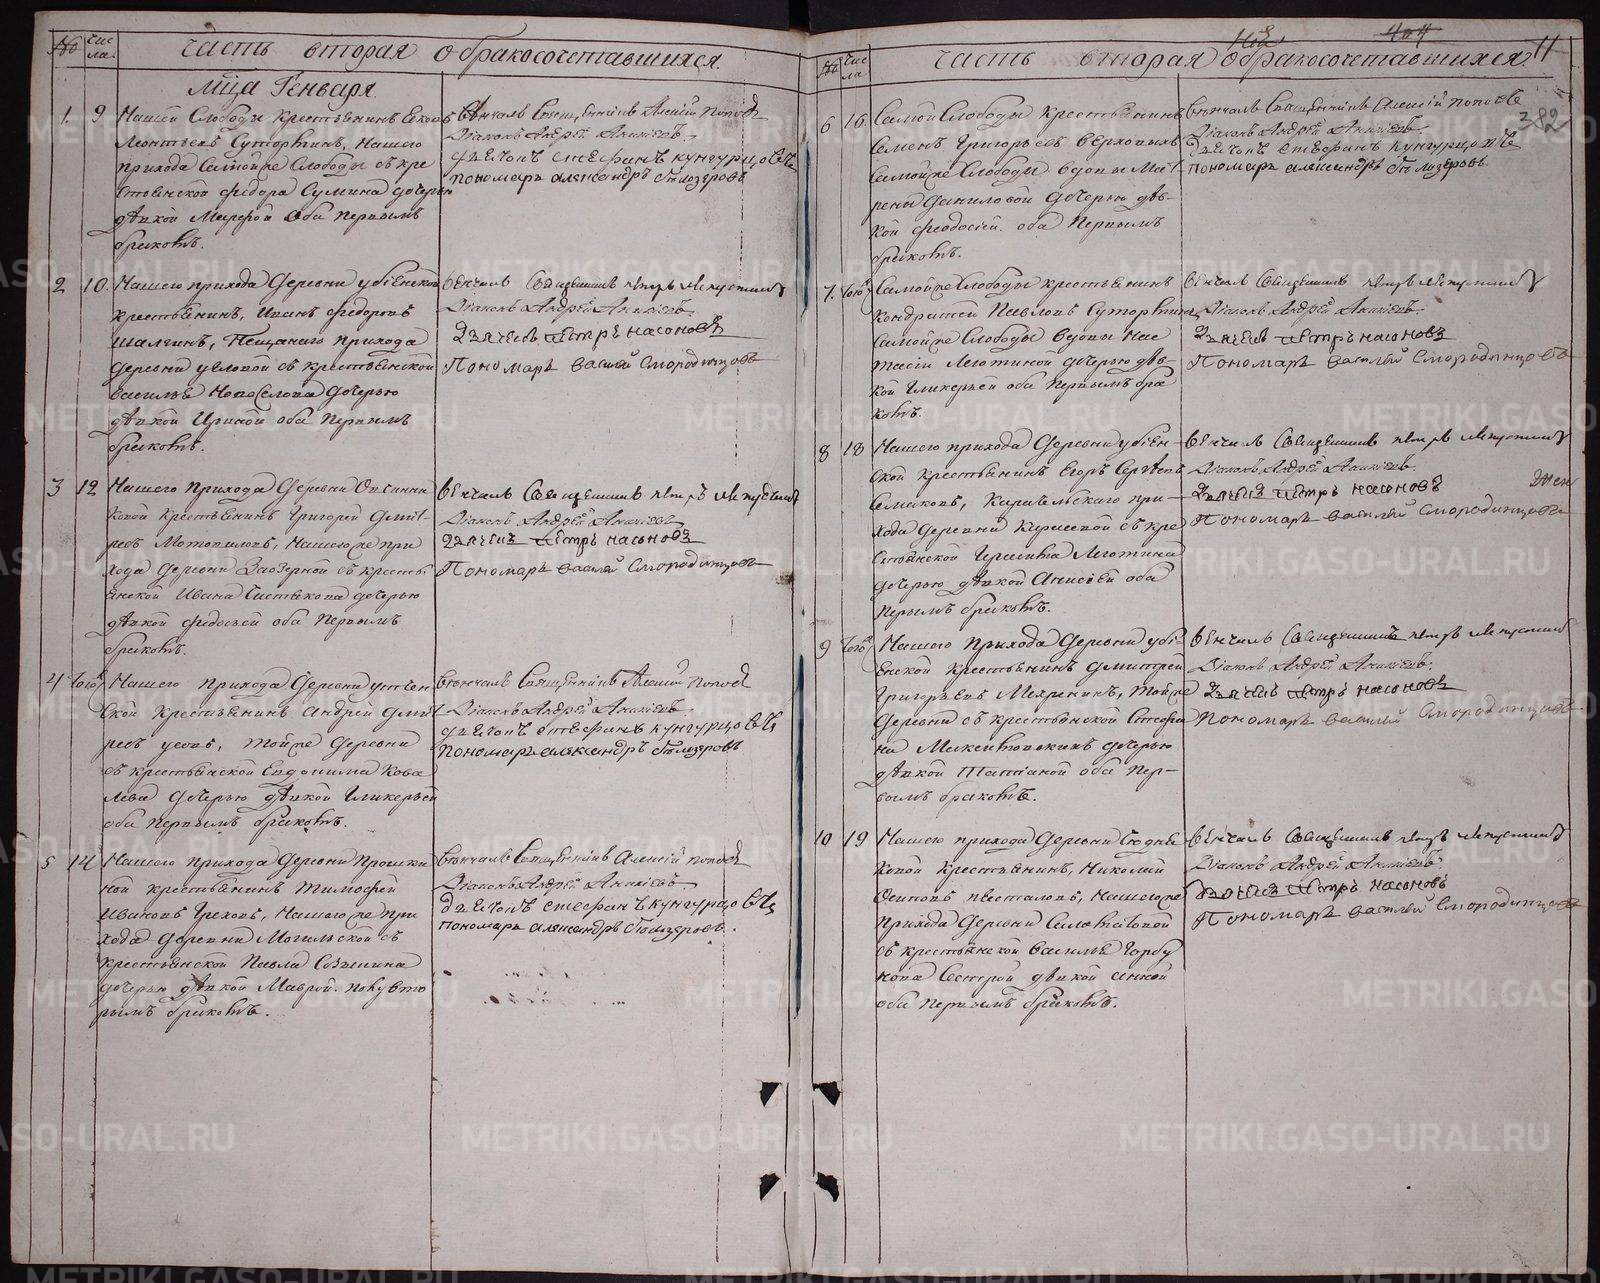 № Числа. Часть вторая о бракосочетавшихся.
мца Генваря
1. 9 Нашей Слободы крестьянинъ
Леонтьевъ Сутормин, Нашего
прихода Самой же Слободы съ кре
стьянской Федора Сумина дочерью
дѣвкой Марфой оба первымъ
бракомъ.
Вѣнчалъ Священникъ Алексiй Поповъ
Дiаконъ Андрей Аникiевъ
дьячокъ стефанъ кунгурцовъ
пономарь александръ бѣлозеровъ
2 10. Нашего прихода Деревни убiенской
крестьянинъ, Иванъ Федоровъ
шалгинъ, Пещанаго прихода
деревни съ крестьянской
василья дочерью
дѣвкой Ириной оба первымъ
бракомъ.
венчалъ Священникъ петръ
Дiаконъ Андрей Аникiевъ
дьячекъ петръ насоновъ
Пономарь василей Смородинцовъ
3 12 Нашего прихода Деревни
ковой крестьянинъ Григорей Дмит-
рев Мотовиловъ, Нашего же при
хода деревни Заозерной съ кресть
янской Ивана Чистякова дочерью
дѣвкой федосьей оба первымъ
бракомъ.
венчалъ Священникъ петръ
Дiаконъ Андрей Аникiевъ
дьячекъ петръ насоновъ
Пономарь василей Смородинцовъ
4 того Нашего прихода Деревни
ской крестьянинъ андрей дмит
ревъ усовъ, той же деревни
съ крестьянской Евдокима Кова
лева дочерью дѣвкой Гликерьей
оба первымъ бракомъ.
Вѣнчалъ Священникъ Алексiй Поповъ
Дiаконъ Андрей Аникiевъ
дьячокъ стефанъ кунгурцовъ
Пономарь александръ бѣлозеровъ
5 14 Нашего прихода Деревни
ной крестьянинъ тимофей
Ивановъ Греховъ, Нашего же при
хода деревни Могильской съ
крестьянской Павла дочерью дѣвкой Маврой. по вто
рымъ бракомъ.
Вѣнчалъ Священникъ Алексiй Поповъ
Дiаконъ Андрей Аникiевъ
дьячокъ стефанъ кунгурцовъ
пономарь александръ бѣлозеровъ.
№ Числа Часть вторая о бракосочетавшихся. 11
404
382
6 16. Самой Слободы крестьянинъ
Семенъ Григорьевъ Верховыхъ
Самой же Слободы вдовы Мат-
рены Даниловой дочерью дѣв-
кой феодосiей. оба первымъ
бракомъ.
Вѣнчалъ Священникъ Алексiй Поповъ
Дiаконъ Андрей Аникiевъ
дьячокъ стефанъ кунгурцовъ
пономарь александръ бѣлозеровъ
7. того Самой же Слободы крестьянинъ
Кондратей Павловъ Сутормин
Самой же Слободы вдовы Нас
тасiи Леготиной дочерью дѣв-
кой Гликерьей оба первымъ бра
комъ.
венчалъ Священникъ петръ
Дiаконъ Андрей Аникiевъ
дьячекъ петръ насоновъ
Пономарь василей Смородинцовъ
8 18 Нашего прихода Деревни убiен-
ской крестьянинъ Егоръ Сергѣевъ
Семаковъ, Каравельскаго при-
хода Деревни Карасевой съ кре
стьянской Леготина
дочерью дѣвкой Анисiей оба
первымъ бракомъ.
венчалъ Священникъ петръ
Дiаконъ Андрей Аникiевъ
дьячекъ петръ насоновъ
Пономарь василей Смородинцовъ
9 того Нашего прихода Деревни убi-
енской крестьянинъ дмитрей
Григорьевъ, той же
деревни съ крестьянской Стефа
на дочерью
дѣвкой Татiаной оба пер-
вымъ бракомъ.
венчалъ Священникъ петръ
Дiаконъ Андрей Аникiевъ.
дьячекъ петръ насоновъ
Пономарь василей Смородинцовъ
10 19 Нашего прихода Деревни
ковой крестьянинъ, Николай
Осиповъ, Нашего же
прихода Деревни
съ крестьянской василья Горбу
нова Сестрой дѣвкой анной
оба первымъ бракомъ.
венчалъ Священникъ петръ
Дiаконъ Андрей Аникiевъ
дьячекъ петръ насоновъ
Пономарь василей Смородинцовъ
METRIKI.GASO-URAL.RU